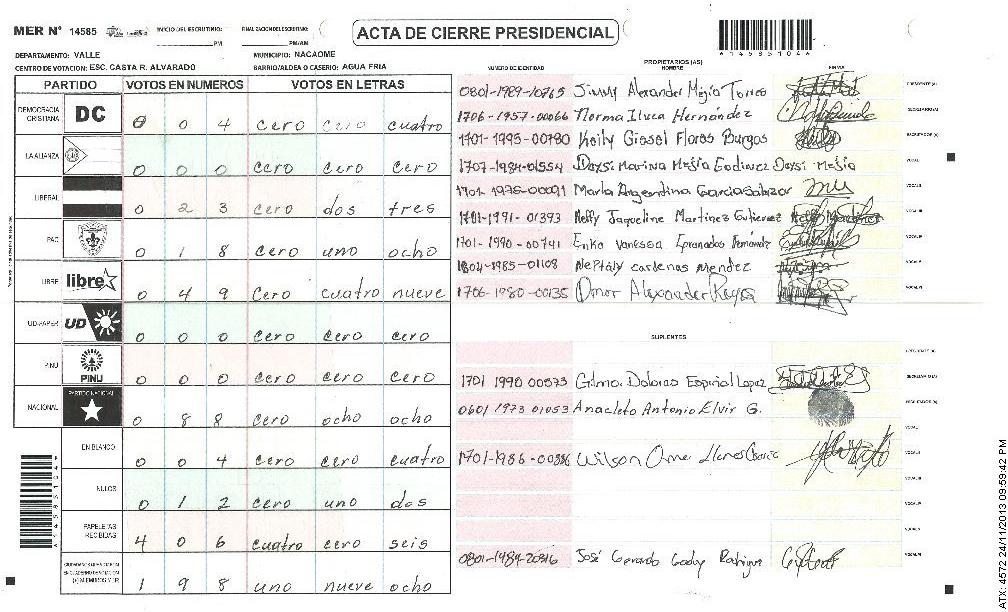 MER N° 14585 INICIO DEL ESCRUTINIO: PM FINALIZACION DEL ESCRUTINIO: PM/AM
ACTA DE CIERRE PRESIDENCIAL
DEPARTAMENTO: VALLE MUNICIPIO: NACAOME
CENTRO DE VOTACION: ESC. CASTA R. ALVARADO BARRIO/ALDEA O CASERIO: AGUA FRIA
PARTIDO VOTOS EN NUMEROS VOTOS EN LETRAS
DEMOCRACIA CRISTIANA DC 0 0 4 cero cero cuatro
LA ALIANZA 0 0 0 cero cero cero
LIBERAL 0 2 3 cero dos tres
PAC 0 1 8 cero uno ocho
LIBRE libre 0 4 9 cero cuatro nueve
UD-FAPER UD 0 0 0 cero cero cero
PINU PINU 0 0 0 cero cero cero
NACIONAL PARTIDO NACIONAL 0 8 8 cero ocho ocho
EN BLANCO 0 0 4 cero cero cuatro
NULOS 0 1 2 cero uno dos
PAPELETAS RECIBIDAS 4 0 6 cuatro cero seis
(+) MIEMBROS MER 1 9 8 uno nueve ocho
PROPIETARIOS (AS)
NUMERO DE IDENTIDAD NOMBRE FIRMA
0801-1989-10765 Jimmy Alexander Mejia Torres
1706-1957-00066 Norma Iluca Hernández
1701-1995-00780 Keily Gissel Flores Burgos
1707-1984-01554 Daysi Marina Mejia Godinez Daysi Mejia
1701-1975-00091 Marla Argentina Garcia Salazar
1701-1991-01393 Nelly Jaqueline Martinez Gutierrez
1701-1990-00741 Erika Vanessa Granados Fernández
1804-1985-01108 Neptaly cardenas Mendez
1706-1980-00135 Omar Alexander Reyes
SUPLENTES
1701 1990 00573 Gilma Dolores Espinal Lopez
0601 1973 01053 Anacleto Antonio Elvir G.
1701-1986-00886 Wilson Omar
0801-1984-20816 José Gerardo Godoy
ATX: 4572 24/11/2013 09:59:42 PM